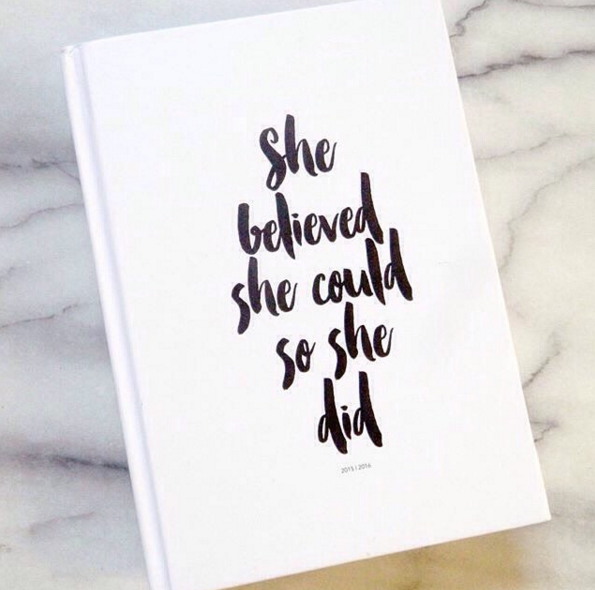 She
believed
she could
so she
did
2015 | 2016